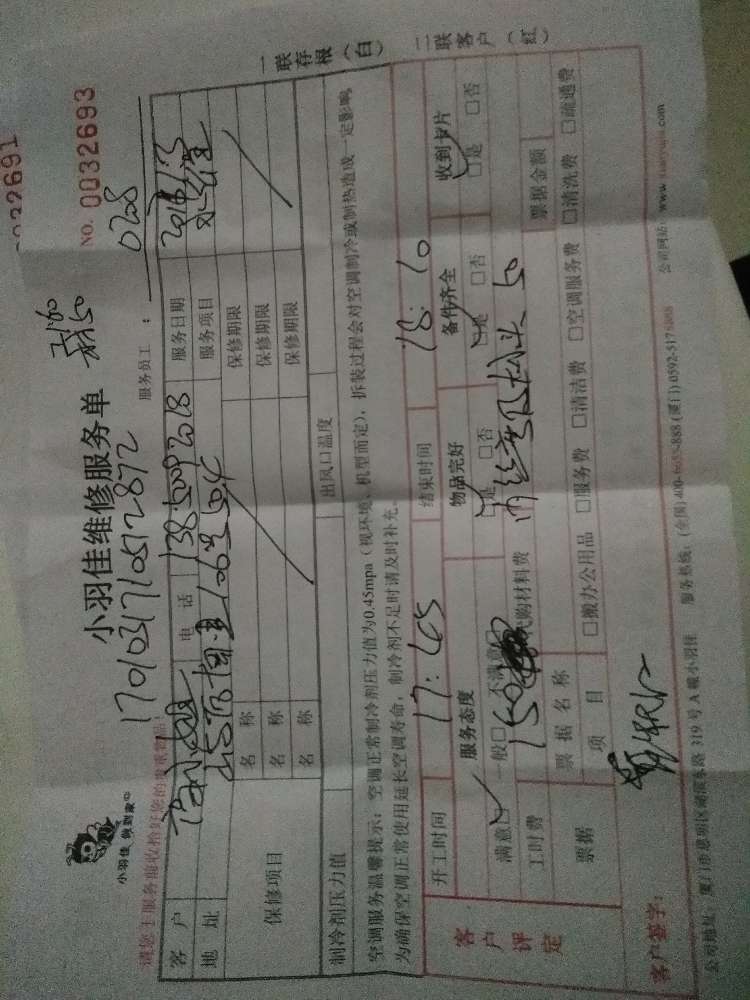 0032691
小羽佳 做到家
小羽佳维修服务单
NO. 0032693
1701031710512872
请您于服务前收拾好您的贵重物品!
服务员工: 0208
客户 电话 13850092018 服务日期
地址 服务项目
保修项目 名称 保修期限
名称 保修期限
名称 保修期限
制冷剂压力值 出风口温度
空调服务温馨提示:空调正常制冷剂压力值为0.45mpa(视环境、机型而定),拆装过程会对空调制冷或制热造成一定影响
为确保空调正常使用延长空调寿命,制冷剂不足时请及时补充。
开工时间 17:45 结束时间 18:10
客户评定 服务态度 物品完好 备件齐全 收到卡片
满意☑ 一般□ 不满意□ ☑是 □否 ☑是 □否 ☑是 □否
工时费 150 代购材料费 50
票据 票据名称 票据金额
项目 □搬办公用品 □服务费 □清洁费 □空调服务费 □清洗费 □疏通费
客户签字:
公司地址:厦门市思明区湖滨东路 319 号 A 幢小羽佳 服务热线:(全国) 400-6655-888 (厦门) 0592-517 公司网站: www. .com
一联存根(白) 二联客户(红)